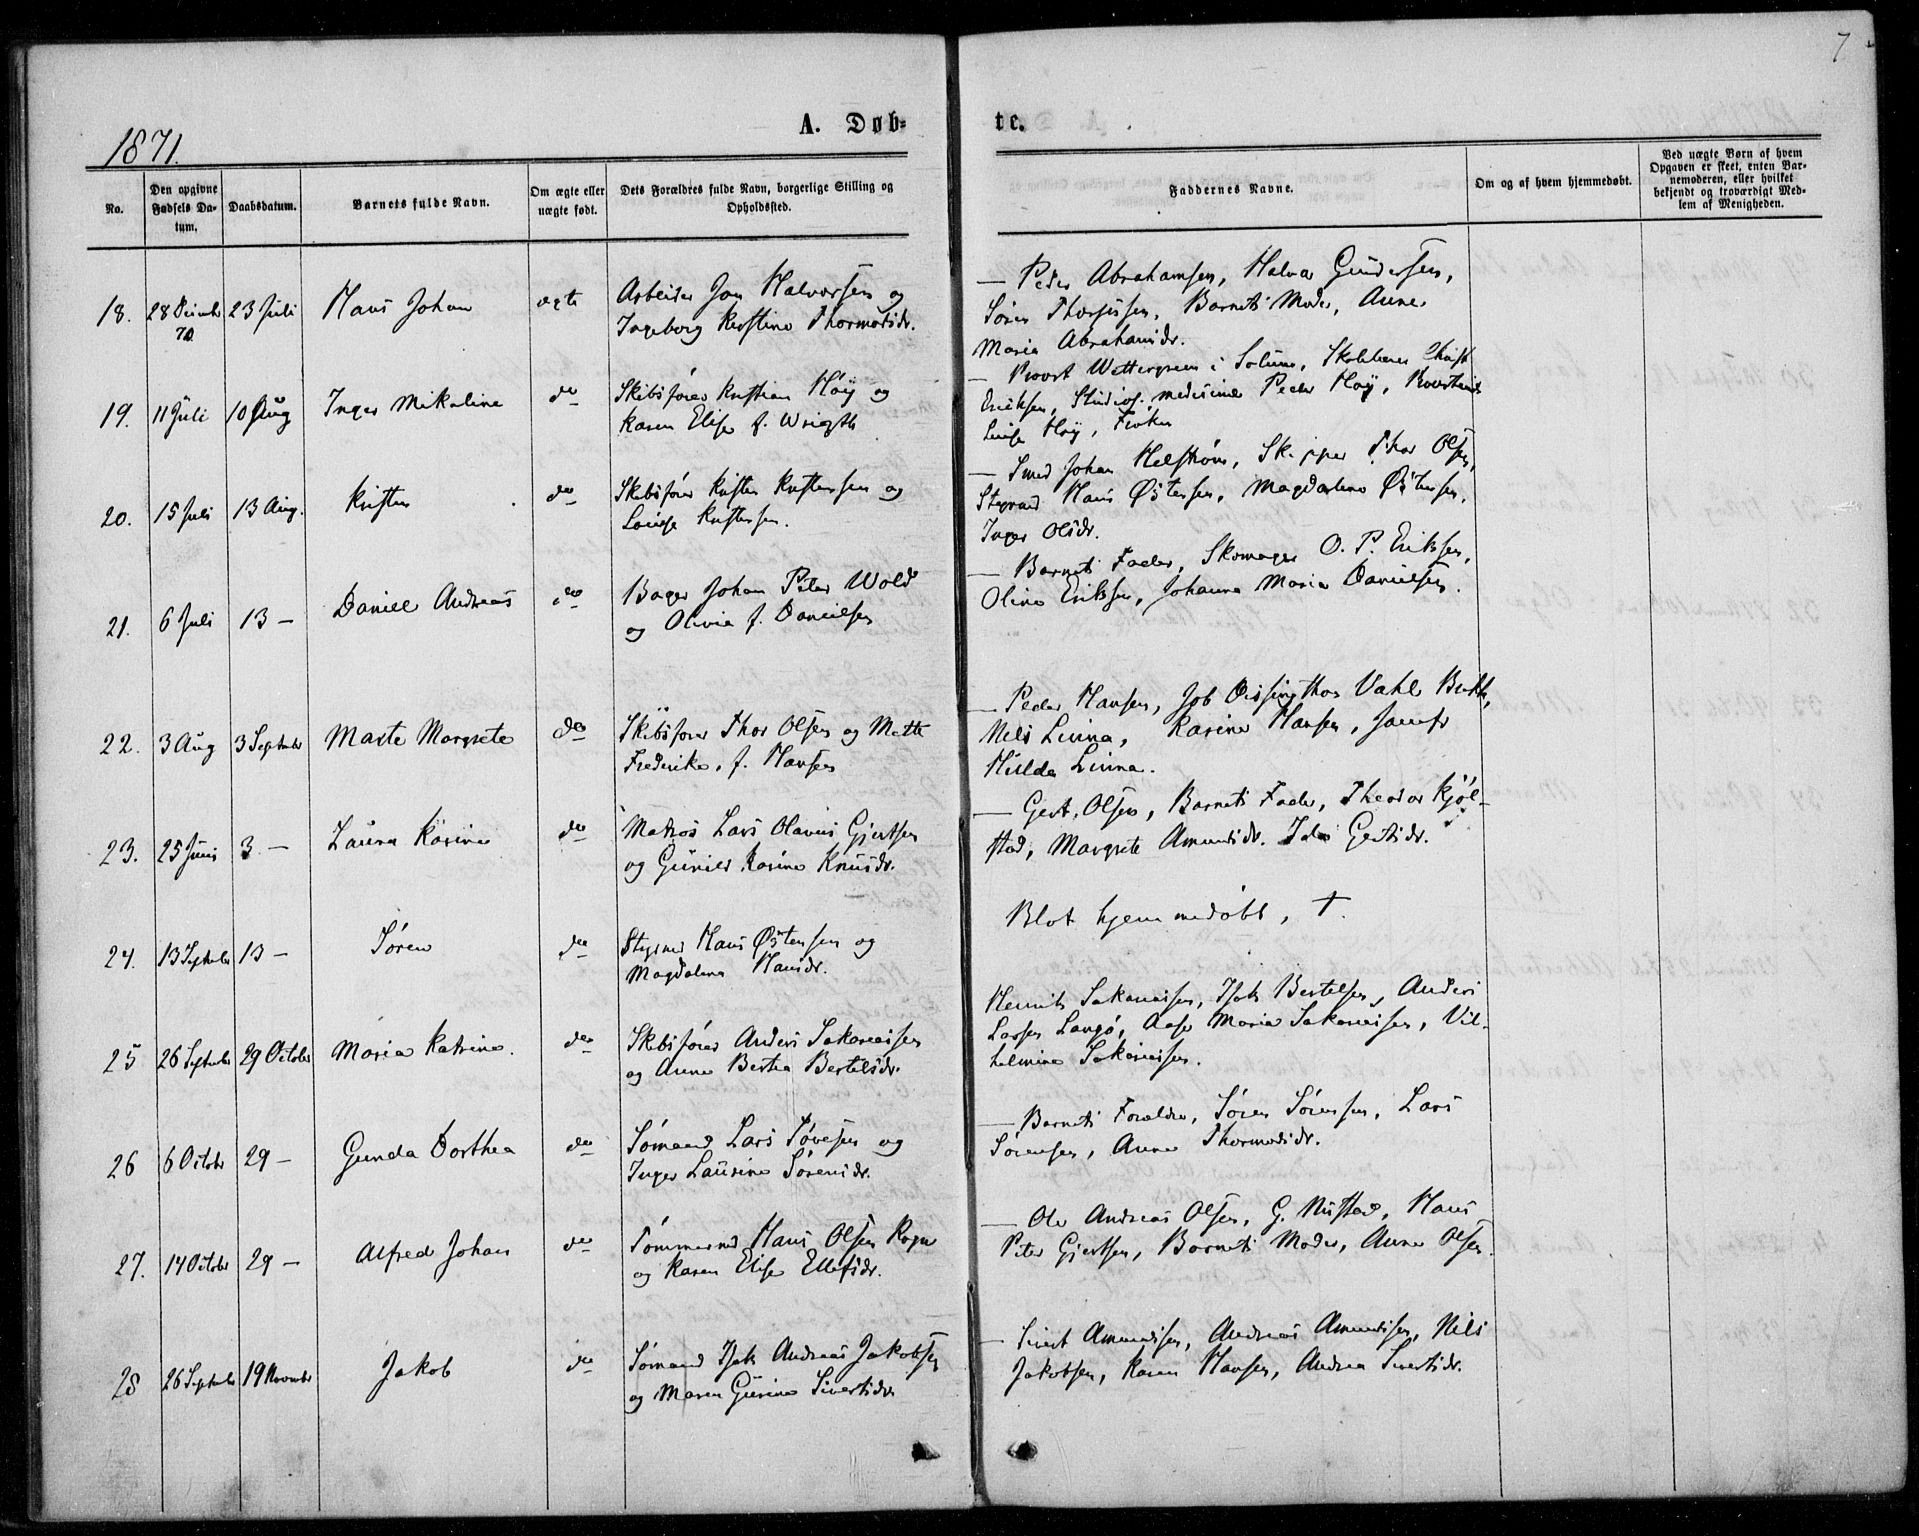 7
1871.
A. Døb-
te.
No.
Den opgivne Fødsels Da-
tum.
Daabsdatum.
Barnets fulde Navn.
Om ægte eller
uægte født.
Dets Forældres fulde Navn, borgerlige Stilling og
Opholdssted.
Faddernes Navne.
Om og af hvem hjemmedøbt.
Ved uægte Børn af hvem
Opgaven er skeet, enten Bar-
nemoderen, eller hvilket
bekjendt og troværdigt Med-
lem af Menigheden.
18. 28 70. 23 Juli Hans Johan ægte
Arbeider Jon Halvorsen og
Ingeborg Kirstine Thormodsdr.
— Peder Abrahamsen, Halvor Gundersen,
Søren Thorjussen, Barnets Moder, Anne
Maria Abrahamsdr.
19. 11 Juli 10 Aug Inger Mikaline do
Skibsfører Kristian Høy og
Karen Elise f. Wrigth
— Provst Wettergreen i Solum,
Eriksen, Studios. medicinæ Peder Høy,
Høy, Frøken
20. 15 Juli 13 Aug. Kristen do
Skibsfører Kristen Kristensen og
Louise Kristensen.
— Smed Johan Helstrøm, Skipper Thor Olsen,
Styrmd Hans Østensen, Magdalene Østensen,
Inger Olsdr.
21. 6 Juli 13 — Daniel Andreas do
Bager Johan Peter Wold
og Olivia f. Danielsen
— Barnets Fader, Skomager O. P. Eriksen,
Oline Eriksen, Johanne Maria Danielsen.
22. 3 Aug 3 Septbr Marte Margrete do
Skibsfører Thor Olsen og Mette
Frederike, f. Hansen
— Peder Hansen, Job Dissingthon Vahl
Nils Linna, Karine Hansen, Jomfr
Hulda Linna.
23. 25 Juni 3 — Laura Karine do
Matros Lars Olavus Gjertsen
og Gunild Karine Knudsdr.
— Gert Olsen, Barnets Fader, Theodor Kjøl-
stad, Margrete Amundsdr. Ida Gertsdr.
24. 13 Septbr 13 — Søren do
Styrmd Hans Østensen og
Magdalena Hansdr.
Blot hjemmedøbt, †.
25 26 Septbr 29 October Maria Katrine. do
Skibsfører Anders Sakariasen
og Anne Bertea Bertelsdr.
Henrik Sakariasen, Isak Bertelsen, Anders
Larsen Langø, Aase Maria Sakariasen, Vil-
helmine Sakariasen.
26 6 Octobr 29 — Gunda Dorthea do
Sømand Lars Sørensen og
Inger Laurine Sørensdr.
— Barnets Forældre, Søren Sørensen, Lars
Sørensen, Anne Thormodsdr.
27. 14 Octobr 29 — Alfred Johan do
Tømmermd Hans Olsen Rogn
og Karen Elise Ellefsdr.
— Ole Andreas Olsen, G. Nustad, Hans
Peter Gjertsen, Barnets Moder, Anne Olsen.
28 26 Septbr 19 Novembr Jakob do
Sømand Isak Andreas Jakobsen
og Maren Gurine Sivertsdr.
— Sivert Amundsen, Andreas Amundsen, Nils
Jakobsen, Karen Hansen, Andrea Sivertsdr.